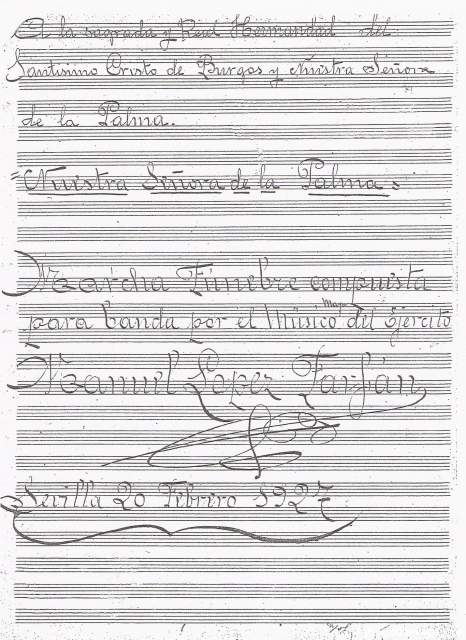 A la sagrada y Real Hermandad del
Santisimo Cristo de Burgos y Nuestra Señora
de la Palma.
=Nuestra Señora de la Palma=
Marcha Fúnebre compuesta
para banda por el Músico Mayor del Ejército
Manuel López Farfán
Sevilla 20 Febrero 1927